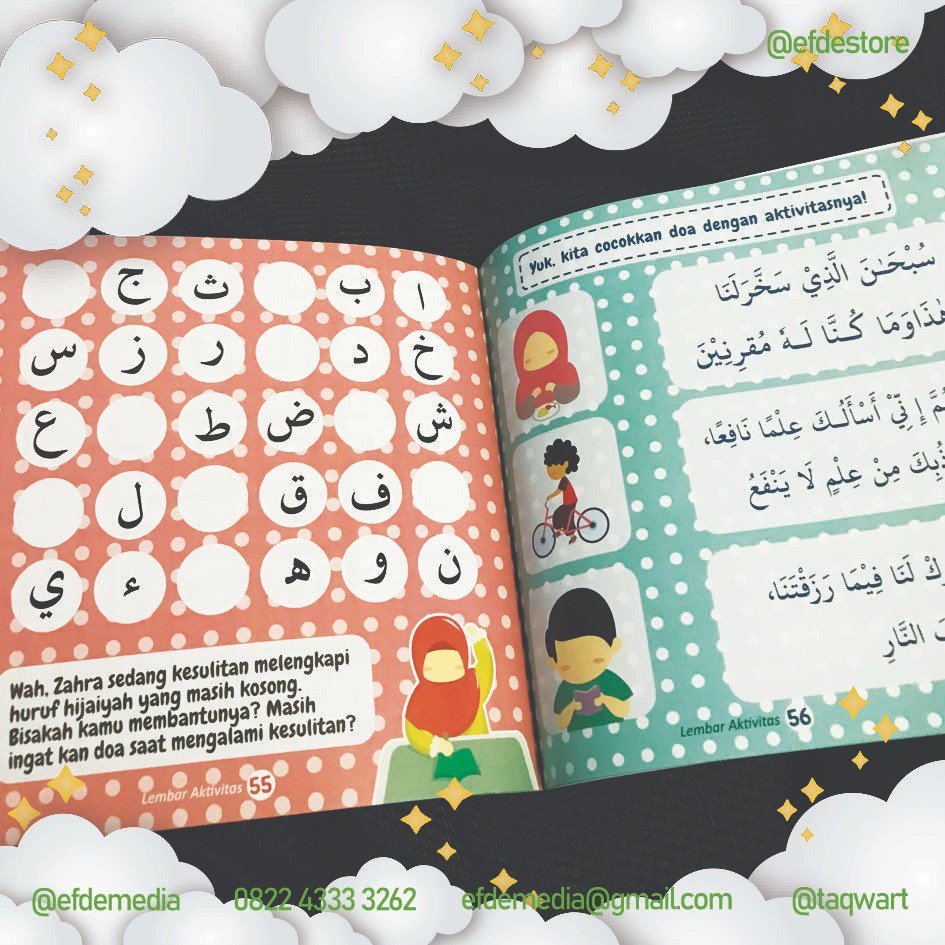 @efdestore
ا ب ث ج
خ د ر ز س
ش ض ط ع
ف ق ل
ن و ه ء ي
Wah, Zahra sedang kesulitan melengkapi
huruf hijaiyah yang masih kosong.
Bisakah kamu membantunya? Masih
ingat kan doa saat mengalami kesulitan?
Lembar Aktivitas 55
Yuk, kita cocokkan doa dengan aktivitasnya!
سُبْحَـٰنَ الَّذِيْ سَخَّرَلَنَا
هٰذَاوَمَا كُـنَّا لَـهٗ مُقْرِنِيْنَ
إِنِّيْ أَسْأَلُـكَ عِلْمًا نَافِعًا،
مِنْ عِلْمٍ لَا يَنْفَعُ
لَنَا فِيْمَا رَزَقْتَنَا،
النَّارِ
Lembar Aktivitas 56
@efdemedia 0822 4333 3262 efdemedia@gmail.com @taqwart